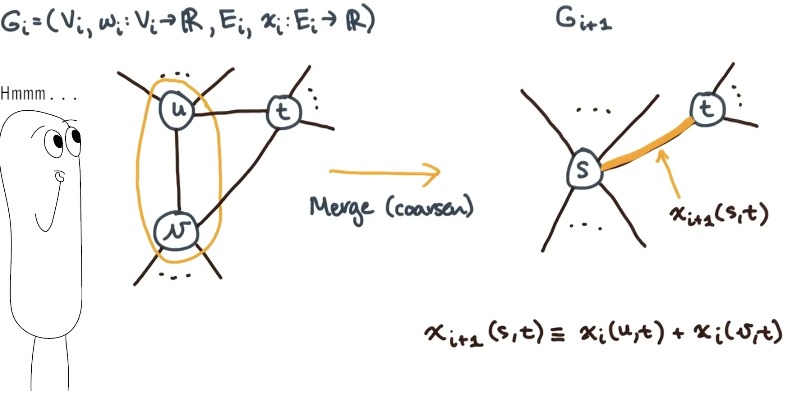 Gᵢ=(Vᵢ, ωᵢ:Vᵢ→ℝ, Eᵢ, xᵢ:Eᵢ→ℝ)
Gᵢ₊₁
Hmmm...
u
t
v
Merge (coarsen)
s
t
xᵢ₊₁(s,t)
xᵢ₊₁(s,t) ≡ xᵢ(u,t) + xᵢ(v,t)